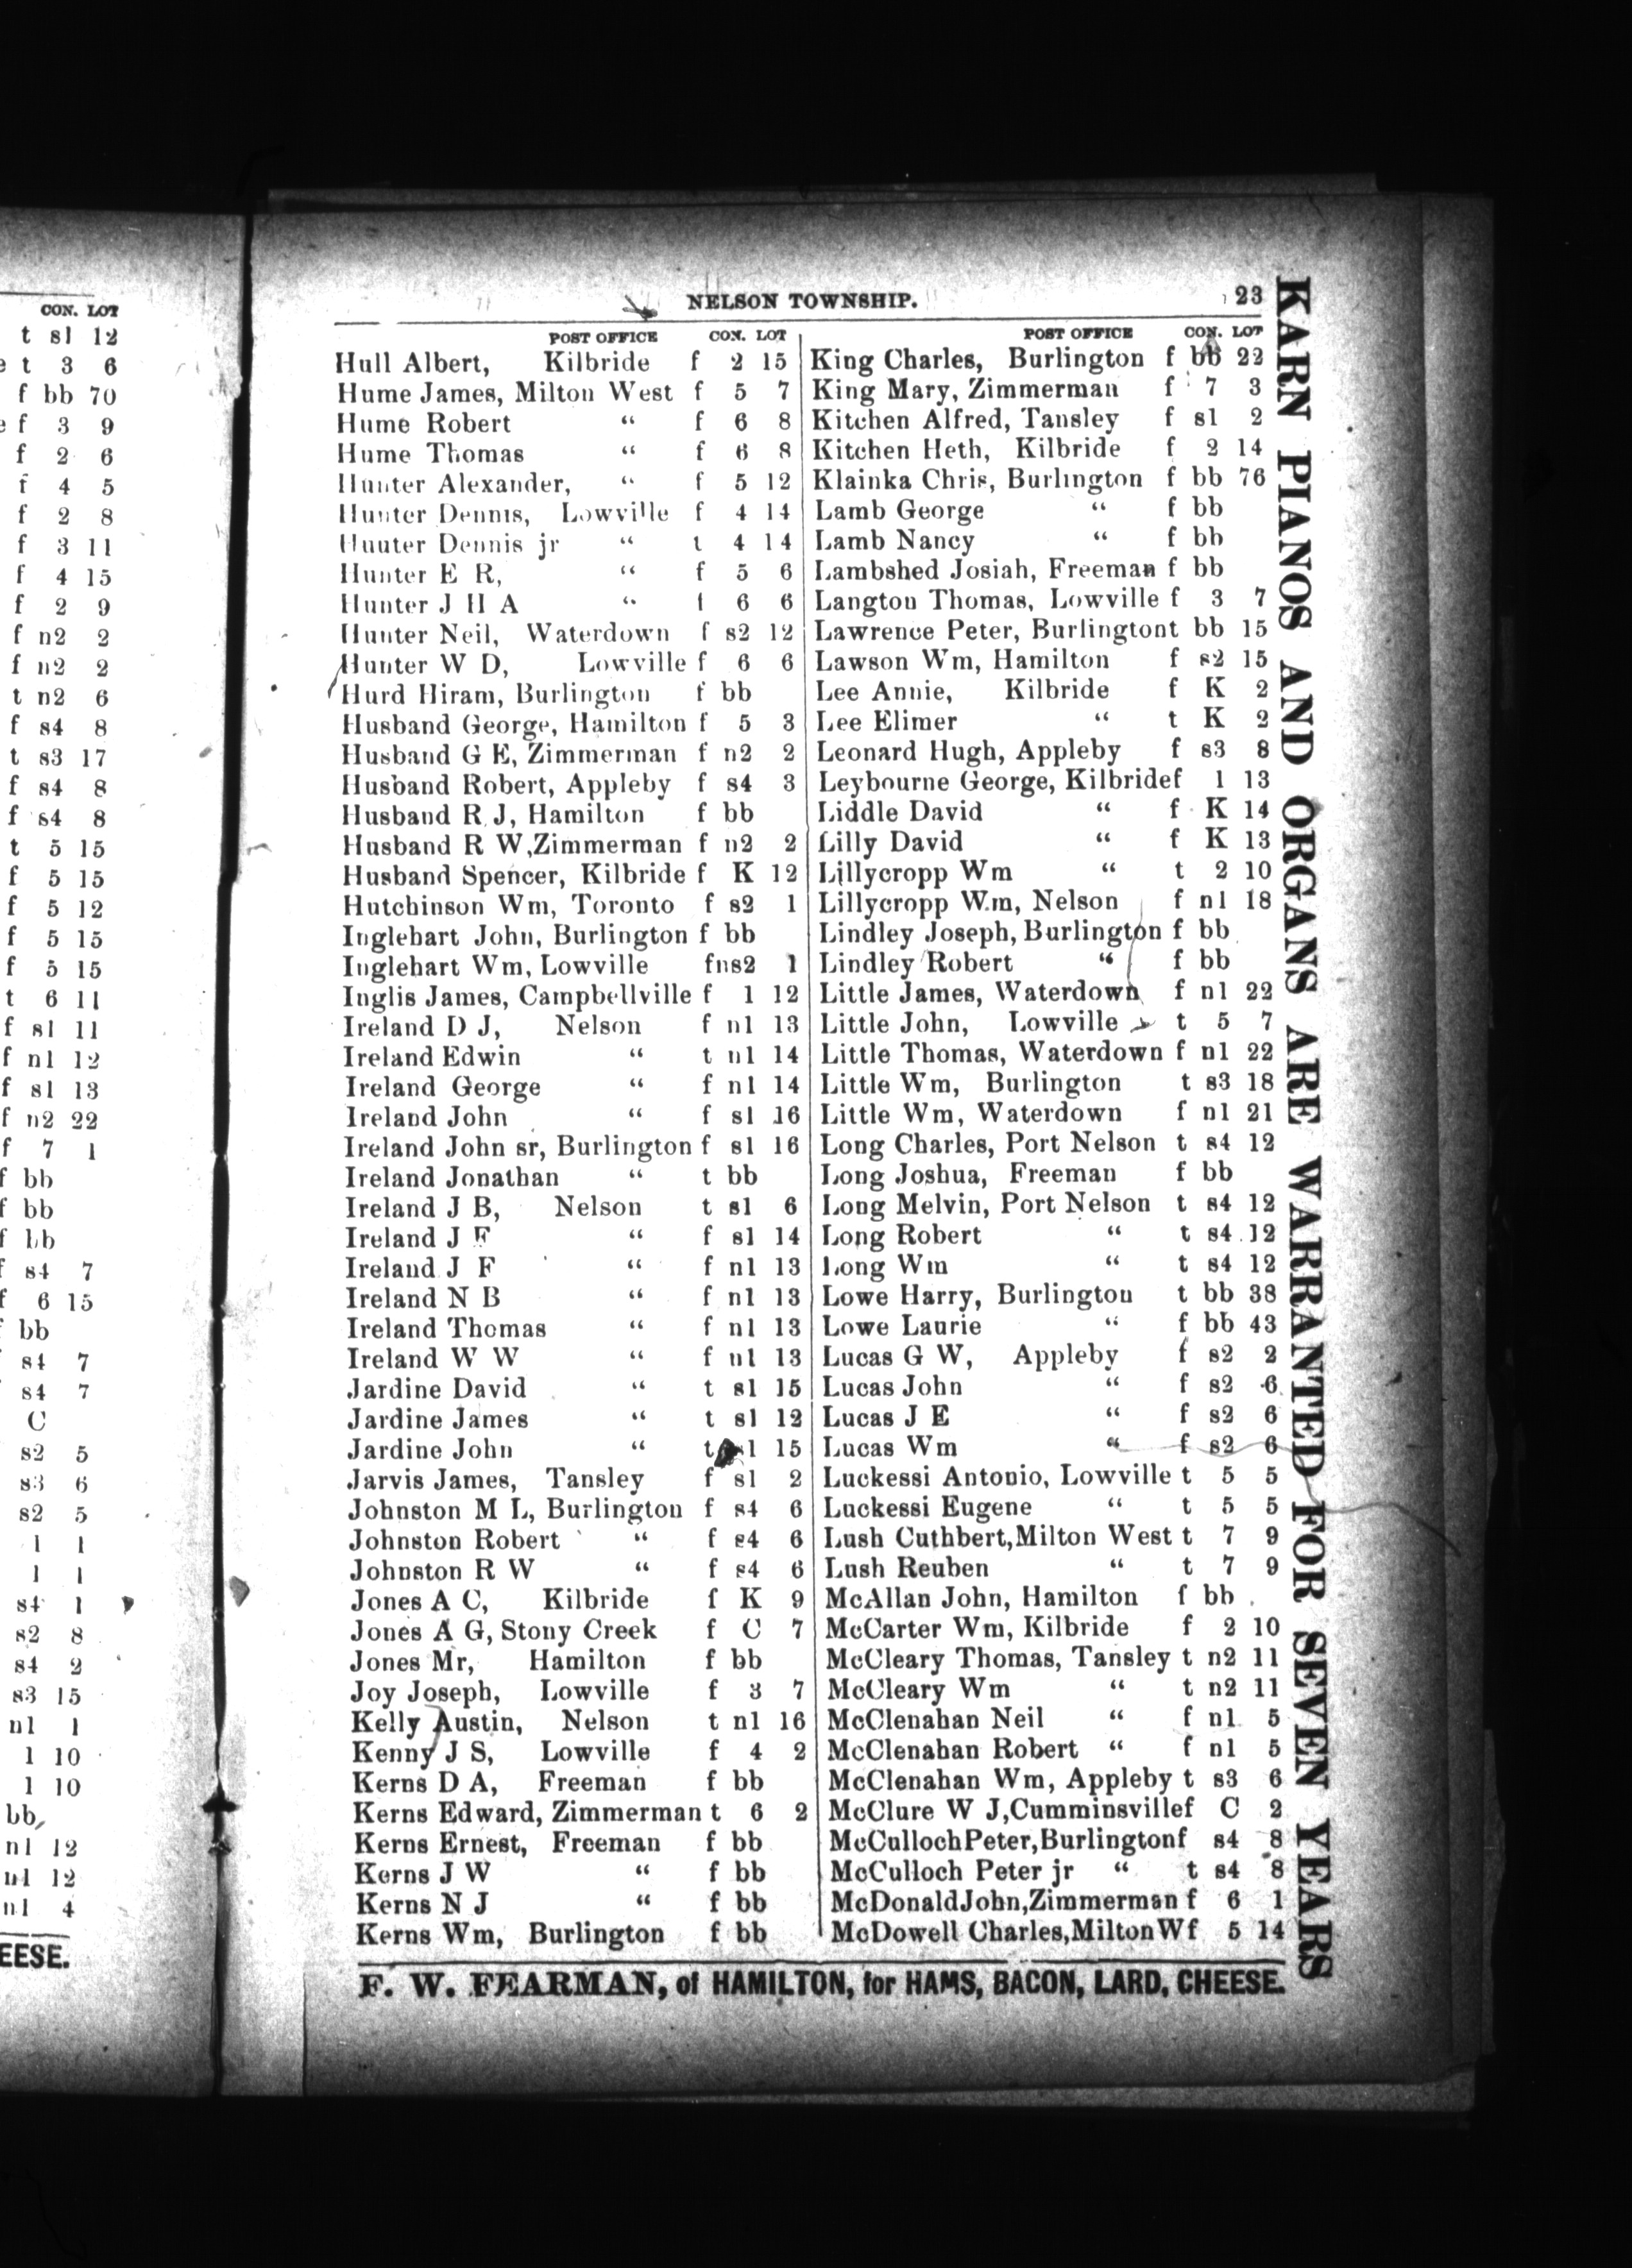 CON. LOT
t s1 12
e t 3 6
f bb 70
e f 3 9
f 2 6
f 4 5
f 2 8
f 3 11
f 4 15
f 2 9
f n2 2
f n2 2
t n2 6
f s4 8
t s3 17
f s4 8
f s4 8
t 5 15
f 5 15
f 5 12
f 5 15
f 5 15
t 6 11
f s1 11
f n1 12
f s1 13
f n2 22
f 7 1
f bb
f bb
f bb
f s4 7
f 6 15
f bb
s4 7
s4 7
C
s2 5
s3 6
s2 5
1 1
1 1
s4 1
s2 8
s4 2
s3 15
n1 1
1 10
1 10
bb
n1 12
n1 12
n1 4
EESE.
NELSON TOWNSHIP. 23
POST OFFICE CON. LOT
Hull Albert, Kilbride f 2 15
Hume James, Milton West f 5 7
Hume Robert “ f 6 8
Hume Thomas “ f 6 8
Hunter Alexander, “ f 5 12
Hunter Dennis, Lowville f 4 14
Huuter Dennis jr “ t 4 14
Hunter E R, “ f 5 6
Hunter J H A “ f 6 6
Hunter Neil, Waterdown f s2 12
Hunter W D, Lowville f 6 6
Hurd Hiram, Burlington f bb
Husband George, Hamilton f 5 3
Husband G E, Zimmerman f n2 2
Husband Robert, Appleby f s4 3
Husband R J, Hamilton f bb
Husband R W,Zimmerman f n2 2
Husband Spencer, Kilbride f K 12
Hutchinson Wm, Toronto f s2 1
Inglehart John, Burlington f bb
Inglehart Wm, Lowville fns2 1
Inglis James, Campbellville f 1 12
Ireland D J, Nelson f n1 13
Ireland Edwin “ t n1 14
Ireland George “ f n1 14
Ireland John “ f s1 16
Ireland John sr, Burlington f s1 16
Ireland Jonathan “ t bb
Ireland J B, Nelson t s1 6
Ireland J F “ f s1 14
Ireland J F “ f n1 13
Ireland N B “ f n1 13
Ireland Thomas “ f n1 13
Ireland W W “ f n1 13
Jardine David “ t s1 15
Jardine James “ t s1 12
Jardine John “ t s1 15
Jarvis James, Tansley f s1 2
Johnston M L, Burlington f s4 6
Johnston Robert “ f s4 6
Johnston R W “ f s4 6
Jones A C, Kilbride f K 9
Jones A G, Stony Creek f C 7
Jones Mr, Hamilton f bb
Joy Joseph, Lowville f 3 7
Kelly Austin, Nelson t n1 16
Kenny J S, Lowville f 4 2
Kerns D A, Freeman f bb
Kerns Edward, Zimmerman t 6 2
Kerns Ernest, Freeman f bb
Kerns J W “ f bb
Kerns N J “ f bb
Kerns Wm, Burlington f bb
POST OFFICE CON. LOT
King Charles, Burlington f bb 22
King Mary, Zimmerman f 7 3
Kitchen Alfred, Tansley f s1 2
Kitchen Heth, Kilbride f 2 14
Klainka Chris, Burlington f bb 76
Lamb George “ f bb
Lamb Nancy “ f bb
Lambshed Josiah, Freeman f bb
Langton Thomas, Lowville f 3 7
Lawrence Peter, Burlingtont bb 15
Lawson Wm, Hamilton f s2 15
Lee Annie, Kilbride f K 2
Lee Elimer “ t K 2
Leonard Hugh, Appleby f s3 8
Leybourne George, Kilbridef 1 13
Liddle David “ f K 14
Lilly David “ f K 13
Lillycropp Wm “ t 2 10
Lillycropp Wm, Nelson f n1 18
Lindley Joseph, Burlington f bb
Lindley Robert “ f bb
Little James, Waterdown f n1 22
Little John, Lowville t 5 7
Little Thomas, Waterdown f n1 22
Little Wm, Burlington t s3 18
Little Wm, Waterdown f n1 21
Long Charles, Port Nelson t s4 12
Long Joshua, Freeman f bb
Long Melvin, Port Nelson t s4 12
Long Robert “ t s4 12
Long Wm “ t s4 12
Lowe Harry, Burlington t bb 38
Lowe Laurie “ f bb 43
Lucas G W, Appleby f s2 2
Lucas John “ f s2 6
Lucas J E “ f s2 6
Lucas Wm “ f s2 6
Luckessi Antonio, Lowville t 5 5
Luckessi Eugene “ t 5 5
Lush Cuthbert,Milton West t 7 9
Lush Reuben “ t 7 9
McAllan John, Hamilton f bb
McCarter Wm, Kilbride f 2 10
McCleary Thomas, Tansley t n2 11
McCleary Wm “ t n2 11
McClenahan Neil “ f n1 5
McClenahan Robert “ f n1 5
McClenahan Wm, Appleby t s3 6
McClure W J,Cumminsvillef C 2
McCullochPeter,Burlingtonf s4 8
McCulloch Peter jr “ t s4 8
McDonaldJohn,Zimmerman f 6 1
McDowell Charles,MiltonWf 5 14
F. W. FEARMAN, of HAMILTON, for HAMS, BACON, LARD, CHEESE.
KARN PIANOS AND ORGANS ARE WARRANTED FOR SEVEN YEARS